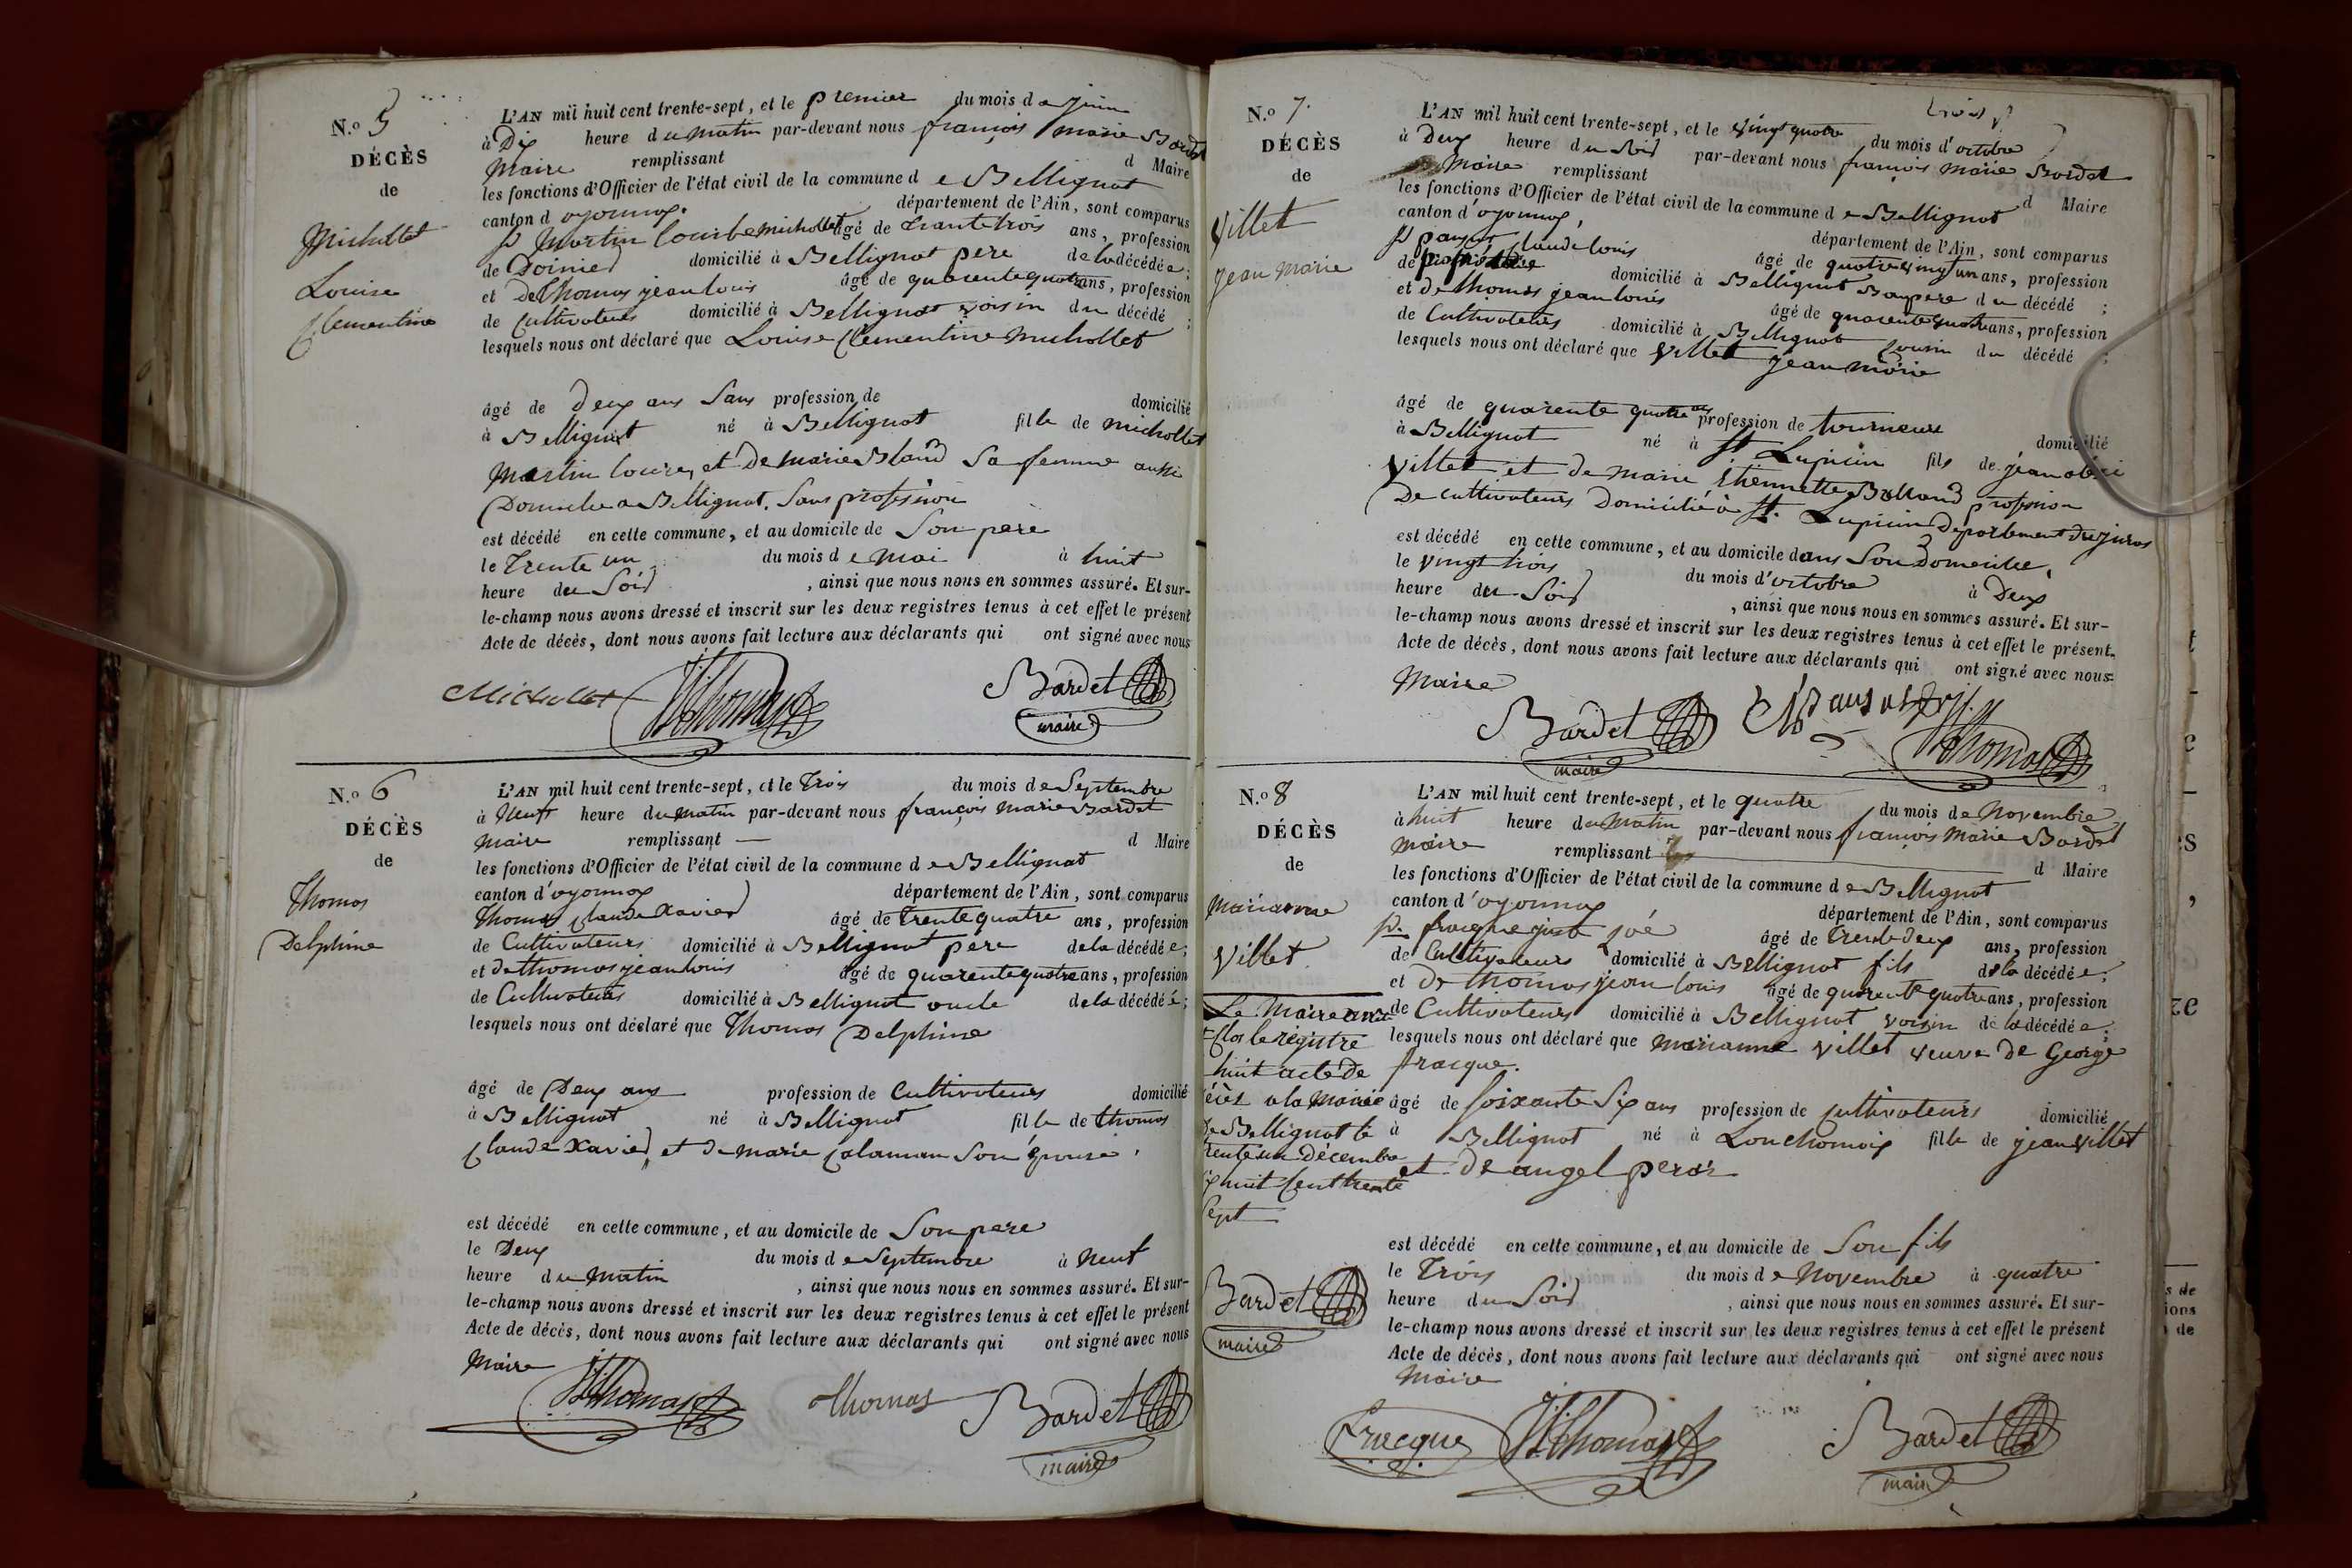 N.o 5
DÉCÈS
de
Michollet
Louise
Clementine
L'AN mil huit cent trente-sept, et le premier du mois de Juin
à Dix heure du matin par-devant nous françois marie Bardet
Maire remplissant d Maire
les fonctions d'Officier de l'état civil de la commune de Bellignat
canton d'oyonnax département de l'Ain, sont comparus
martin michollet âgé de Trante trois ans, profession
de domicilié à Bellignat pere de la décédée;
et De thomas jean louis âgé de quarente quatre ans, profession
de Cultivateurs domicilié à Bellignat voisin du décédé;
lesquels nous ont déclaré que Louise Clementine michollet
âgé de Deux ans Sans profession de domicilié
à Bellignat né à Bellignat fille de michollet
Martin et De marie Bland Sa femme aussi
Domicilie a Bellignat. Sans profession
est décédé en cette commune, et au domicile de Son père
le Trente un du mois de Mai à huit
heure du Soir, ainsi que nous nous en sommes assuré. Et sur-
le-champ nous avons dressé et inscrit sur les deux registres tenus à cet effet le présent
Acte de décès, dont nous avons fait lecture aux déclarants qui ont signé avec nous
Michollet Thomas Bardet
maire
N.o 6
DÉCÈS
de
Thomas
Delphine
L'AN mil huit cent trente-sept, et le Trois du mois de Septembre
à Neuf heure du matin par-devant nous françois marie Bardet
maire remplissant — d Maire
les fonctions d'Officier de l'état civil de la commune de Bellignat
canton d'oyonnax département de l'Ain, sont comparus
Thomas Claude Xavier âgé de Trente quatre ans, profession
de Cultivateurs domicilié à Bellignat pere de la décédée;
et de thomas jean louis âgé de quarente quatre ans, profession
de Cultivateurs domicilié à Bellignat oncle de la décédée;
lesquels nous ont déclaré que Thomas Delphine
âgé de Deux ans profession de Cultivateurs domicilié
à Bellignat né à Bellignat fille de thomas
Claude Xavier, et de marie Calaman Son épouse.
est décédé en cette commune, et au domicile de Son pere
le Deux du mois de Septembre à Neuf
heure du Matin, ainsi que nous nous en sommes assuré. Et sur-
le-champ nous avons dressé et inscrit sur les deux registres tenus à cet effet le présent
Acte de décès, dont nous avons fait lecture aux déclarants qui ont signé avec nous
Maire
Thomas thomas Bardet
maire
N.o 7.
DÉCÈS
de
Villet
jean marie
L'AN mil huit cent trente-sept, et le vingt quatre du mois d'octobre
à Deux heure du Soir par-devant nous françois marie Bardet
Maire remplissant d Maire
les fonctions d'Officier de l'état civil de la commune de Bellignat
canton d'oyonnax, département de l'Ain, sont comparus
Claude louis âgé de quatre vingt un ans, profession
de domicilié à Bellignat Baupere du décédé;
et de thomas jean louis âgé de quarente quatre ans, profession
de Cultivateurs domicilié à Bellignat Cousin du décédé;
lesquels nous ont déclaré que Villet jean marie
âgé de quarente quatre ans profession de tourneur domicilié
à Bellignat né à St Lupicin fils de jean
Villet et de marie Etiennette profession
De cultivateurs Domicilié à St. Lupicin Departement du jura
est décédé en cette commune, et au domicile dans Son Domicile,
le vingt trois du mois d'octobre à Deux
heure du Soir, ainsi que nous nous en sommes assuré. Et sur-
le-champ nous avons dressé et inscrit sur les deux registres tenus à cet effet le présent
Acte de décès, dont nous avons fait lecture aux déclarants qui ont signé avec nous
Maire
Bardet Thomas
maire
N.o 8
DÉCÈS
de
Marianne
Villet
L'AN mil huit cent trente-sept, et le quatre du mois de Novembre
à huit heure du Matin par-devant nous françois Marie Bardet
maire remplissant d Maire
les fonctions d'Officier de l'état civil de la commune de Bellignat
canton d'oyonnax département de l'Ain, sont comparus
fracque âgé de Trente deux ans, profession
de Cultivateurs domicilié à Bellignat fils de la décédée;
et De thomas jean louis âgé de quarente quatre ans, profession
de Cultivateurs domicilié à Bellignat voisin de la décédée;
lesquels nous ont déclaré que marianne villet veuve De George
fracque.
âgé de soixante Six ans profession de Cultivateurs domicilié
à Bellignat né à Lonchomois fille de jean Villet
et de angel
est décédé en cette commune, et au domicile de Son fils
le Trois du mois de Novembre à quatre
heure du Soir, ainsi que nous nous en sommes assuré. Et sur-
le-champ nous avons dressé et inscrit sur les deux registres tenus à cet effet le présent
Acte de décès, dont nous avons fait lecture aux déclarants qui ont signé avec nous
Maire
Fracque Thomas Bardet
maire
Le Maire
Clos le registre
huit acte de
a la Mairie
de Bellignat le
trente un décembre
huit Cent trente
Sept
Bardet
maire